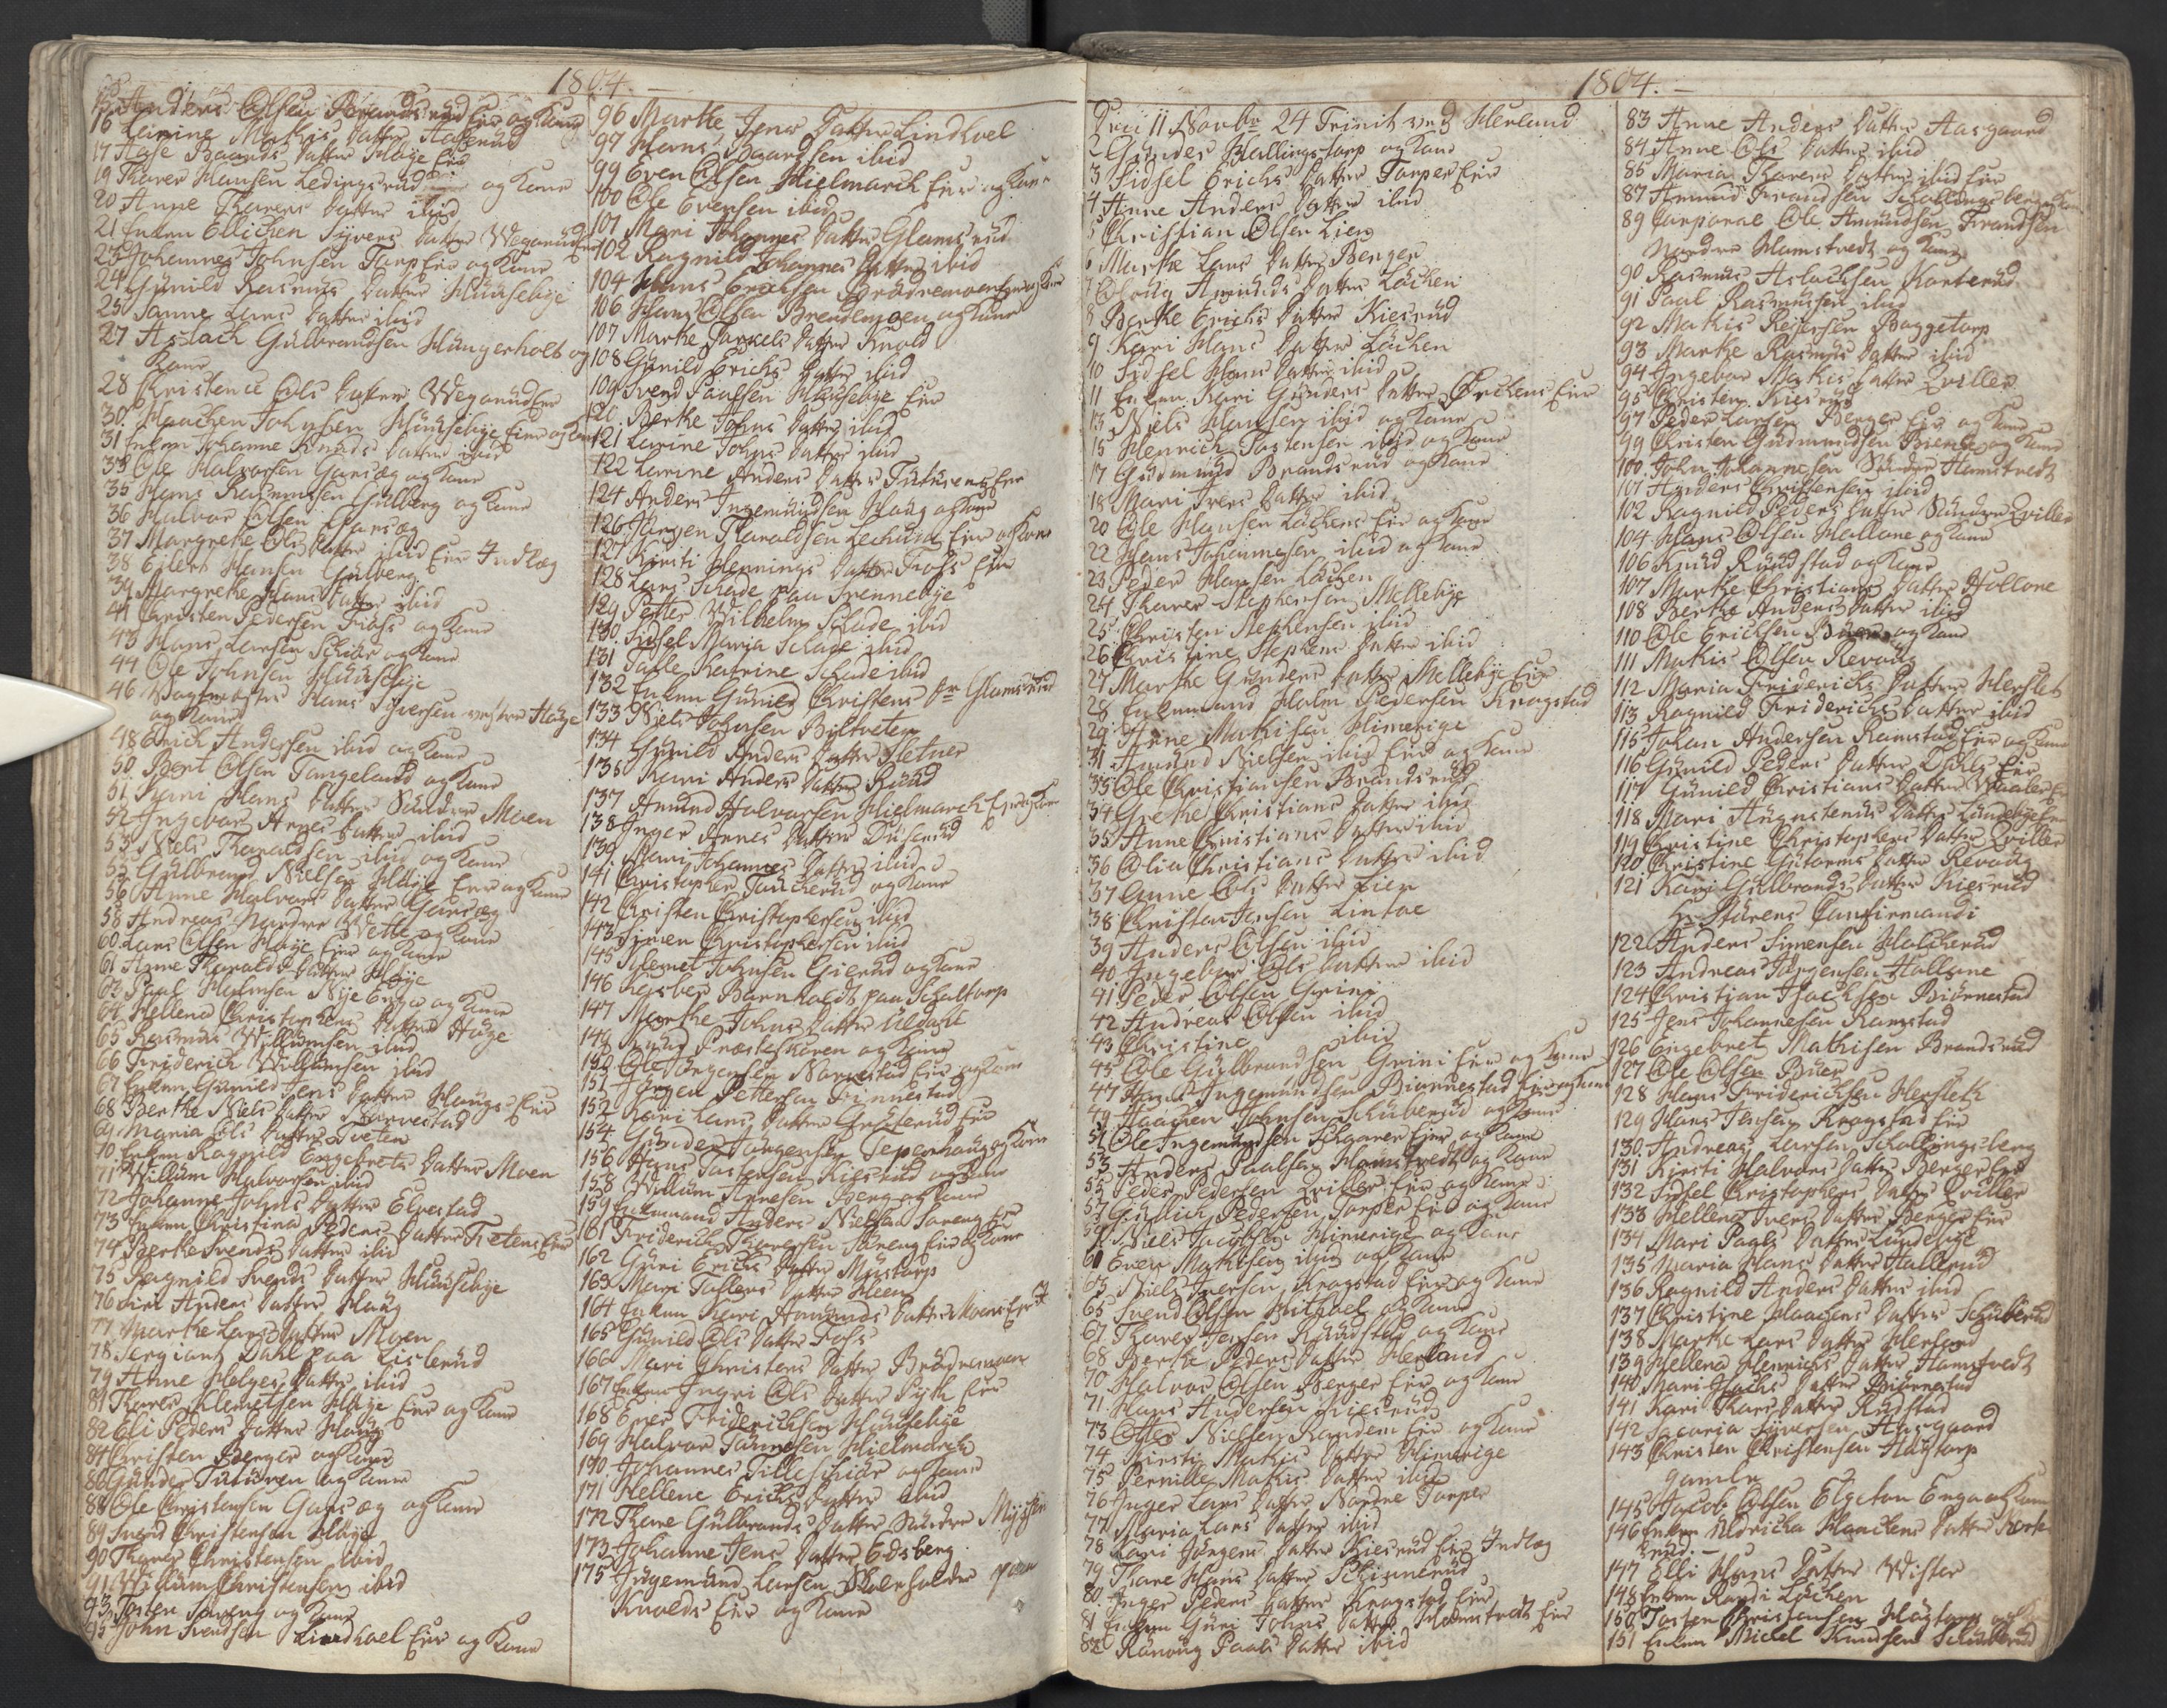 1804.
15 Anders Olsen Brandsrud Eier og Kone
16 Karine Mathis Datter Aaserud
17 Aase Baards Datter Høye Eie
19 Thorer Hansen Ledingsrud og Kone
20 Anne Thorers Datter ibid
21 Enken Ellichen Syvers Datter Wegerud
23 Johannes Johnsen Torp Eie og Kone
24 Gunild Rasmus Datter Huusebye
25 Sanne Lars Datter ibid
27 Asslach Gulbrandsen Hungerholt og
Kone
28 Christence Ols Datter Wegerud Eie
30 Haachen Johnsen Huusebye Eier og Kone
31 Enken Johanne Knuds Datter ibid
33 Ole Halvorsen Garsæg og Kone
35 Hans Rasmusen Gulberg og Kone
36 Halvor Olsen Garsæg
37 Margrethe Ols Datter ibid Eier Indlæg
38 Ehlert Hansen Gulberg
39 Margrethe Hans Datter ibid
41 Christen Pedersen Fross og Kone
43 Hans Larsen Schiær og Kone
44 Ole Johnsen Huusebye
46 Wagtmester Hans Syversen vestre Høye
og Kone
48 Erich Andersen ibid og Kone
50 Bent Olsen Tangeland og Kone
51 Kari Hans Datter Søndre Moen
52 Ingebor Arnes Datter ibid
53 Niels Thoraldsen ibid og Kone
55 Gulbrand Nielsen Høye Eier og Kone
56 Anne Halvors Datter Garsæg
58 Andreas Nordre Wethe og Kone
60 Lars Olsen Høye Eier og Kone
61 Anne Thoralds Datter Høye
63 Paul Nye Eng og Kone
64 Hellene Christophers Datter Høye
65 Rasmus Willumsen ibid
66 Friderich Willumsen ibid
67 Enken Gunild Jens Datter Haugs Eie
68 Berthe Niels Datter Narvestad
69 Maria Ols Datter Tveten
70 Enken Ragnild Engebrets Datter Moen
71 Willum Halvorsen ibid
72 Johanne Johns Datter Elvestad
73 Enken Christina Peders Datter Tvetens Eie
74 Berthe Svends Datter ibid
75 Ragnild Svends Datter Huusebye
76 Siri Anders Datter Haug
77 Marthe Lars Datter Moen
78 Sergiant Dahl paa Lislerud
79 Anne Helges Datter ibid
81 Thorer Klemetsen Høye Eier og Kone
82 Eli Peders Datter Haug
84 Christen Berger og Kone
86 Gunder Tuturen og Kone
88 Ole Christensen Garsæg og Kone
89 Svend Christensen Høye
90 Thorer Christensen ibid
91 Willum Christensen ibid
93 Tosten Søreng og Kone
95 John Svendsen Lindhoel Eie og Kone
96 Marthe Jens Datter Lindhoel
97 Hans Baardsen ibid
99 Even Olsen Hielmarck Eie og Kone
100 Ole Evensen ibid
101 Mari Johannes Datter Glamsrud
102 Ragnild Johannes Datter ibid
104 Hans Erichsen Brødremoen Eie og Kone
106 Hans Olsen Brendemoen og Kone
107 Marthe Torkels Datter Knold
108 Gunild Erichs Datter ibid
109 Svend Paulsen Huusebye Eie
120 Berthe Johns Datter ibid
121 Karine Johns Datter ibid
122 Karine Anders Datter Tuturens Eie
124 Anders Ingemundsen Haug og Kone
126 Jørgen Thoraldsen Lechum Eie og Kone
127 Kirsti Hennings Datter Foss Eie
128 Lars Schade paa Trennebye
129 Petter Wilhelm Schade ibid
130 Sidsel Maria Schade ibid
131 Taale Katrine Schade ibid
132 Enken Gunild Christens Dr Glamsrud
133 Niels Johnsen Biltveten
134 Gunild Anders Datter Hetner
135 Kari Anders Datter Ruud
137 Amund Halvorsen Hielmarch Eie og Kone
138 Inger Arnes Datter Duserud
139 Mari Johannes Datter ibid
141 Christopher Taucherud og Kone
142 Christen Christophersen ibid
143 Simen Christophersen ibid
145 Klemet Johnsen Gierud og Kone
146 Barnholdt paa Schaltorp
147 Marthe Johns Datter Uldahl
149 Knud Præsteskoven og Kone
150 Ole Jngensen Narvestad Eie og Kone
151 Jørgen Pettersen Finnestad
152 Kari Lars Datter Grøterud Eie
154 Gunder Jørgensen Teperhaug og Kone
156 Hans Tostensen Kiesrud og Kone
158 Willum Arnesen Berg og Kone
159 Enkemand Anders Nielsen Søreng Eie
161 Friderich Thoresen Søreng Eie og Kone
162 Guri Erichs Datter Mustorp
163 Mari Tollens Datter Heen
164 Enken Kari Amunds Datter Moens Eie
165 Gunild Ols Datter Foss
166 Mari Christens Datter Brødremoen
167 Enken Ingri Ols Datter Eie
168 Ener Friderichsen Huusebye
169 Halvor Tønnesen Hielmarch
170 Johannes Tilleschiær og Kone
171 Hellene Erichs Datter ibid
172 Thore Gulbrands Datter Søndre
173 Johanne Jens Datter Edsberg
175 Ingemund Larsen Skoleholder paa
Knolds Eie og Kone
1804.
Dom 11 Novbr 24 Trinit ved Herland
2 Gunder Hallingstorp og Kone
3 Sidsel Erichs Datter Torper Eie
4 Anne Anders Datter ibid
5 Christian Olsen Lien
6 Marthe Lars Datter Berger
7 Oloug Amunds Datter Løchen
8 Berthe Erichs Datter Kiesrud
9 Kari Hans Datter Løchen
10 Sidsel Hans Datter ibid
11 Enken Kari Gunders Datter Løchens Eie
13 Niels Hansen ibid og Kone
15 Henrich Tostensen ibid og Kone
17 Gudmund Brandsrud og Kone
18 Mari Ivers Datter ibid
20 Ole Hansen Løchens Eie og Kone
22 Hans Johannesen ibid og Kone
23 Peder Hansen Løchen
24 Thorer Stephensen Mellebye
25 Christen Stephensen ibid
26 Christine Stephens Datter ibid
27 Marthe Gunders Datter Mellebye Eie
28 Enkemand Holm Pedersen Kragstad
29 Arne Mathisen Himerige
31 Amund Nielsen ibid Eie og Kone
33 Ole Christiansen Brandsrud
34 Grethe Christians Datter ibid
35 Anne Christians Datter ibid
36 Olia Christians Datter ibid
37 Anne Ols Datter Lien
38 Christen Jensen Lintoe
39 Anders Olsen ibid
40 Ingebor Ols Datter ibid
41 Peder Olsen Grini
42 Andreas Olsen ibid
43 Christine ibid
45 Ole Gulbrandsen Grini Eie og Kone
47 Hans Ingemundsen Biørnestad Eie og Kone
49 Haachen Johnsen Schuberud og Kone
51 Ole Ingemundsen Eie og Kone
53 Anders Paalsen Hamstvedt og Kone
55 Peder Pedersen Qviller Eie og Kone
57 Gullich Pedersen Torper Eie og Kone
59 Niels Jacobsen Himerige og Kone
61 Even Mathisen ibid og Kone
63 Niels Iversen Kragstad Eie og Kone
65 Svend Olsen og Kone
67 Thorer Jensen Ruudstad og Kone
68 Berthe Peders Datter Herland
70 Halvor Olsen Berger Eie og Kone
71 Hans Andersen Kiesrud
73 Otter Nielsen Randem Eie og Kone
74 Kirsti Mathis Datter Himerige
75 Pernille Mathis Datter ibid
76 Inger Lars Datter Nordre Torper
77 Maria Lars Datter ibid
78 Kari Jørgens Datter Kiesrud Eie Indlæg
79 Thore Hans Datter Schinnerud
80 Inger Peders Datter Kragstad Eie
81 Enken Guri Johns Datter Hamstvedt Eie
82 Rønoug Paals Datter ibid
83 Anne Anders Datter Aasgaard
84 Anne Ols Datter ibid
85 Maria Thorers Datter ibid Eie
87 Amund Frandsen Schallingsberg og Kone
89 Corporal Ole Amundsen Frandsen
Nordre Hamstvedt og Kone
90 Rasmus Aslachsen Korterud
91 Paul Rasmussen ibid
92 Mathis Reiersen Baggetorp
93 Marthe Rasmus Datter ibid
94 Ingebor Mathis Datter Qviller
95 Christen Kiesrud
97 Peder Larsen Berger Eie og Kone
99 Christen Gudmundsen og Kone
100 John Johannesen Søndre Hamstvedt
101 Anders Christensen ibid
102 Ragnild Peders Datter Søndre Qviller
104 Hans Olsen Hallone og Kone
106 Knud Ruudstad og Kone
107 Marthe Christians Datter Hollone
108 Berthe Anders Datter ibid
110 Ole Erichsen Buer og Kone
111 Mathis Olsen Revoug
112 Maria Friderichs Datter Herslet
113 Ragnild Friderichs Datter ibid
115 Johan Andersen Ramstad Eie og Kone
116 Gunild Peders Datter Eie
117 Gunild Christians Datter Waaler Eie
118 Mari Augustinus Datter Lundebye Eie
119 Christine Christophers Datter Qviller
120 Christine Gutorms Datter Revoug
121 Kari Gulbrands Datter Kiesrud
Hr Størens Confirmandi
122 Anders Simensen Holcherud
123 Andreas Jørgensen Hallone
124 Christian Isachsen Biørnestad
125 Jens Johannesen Ramstad
126 Engebret Mathisen Brandsrud
127 Ole Olsen Buer
128 Hans Friderichsen Hersleth
129 Hans Jensen Kragstad Eie
130 Andreas Larsen Schallingsberg
131 Kirsti Halvors Datter Berger Eie
132 Sidsel Christophers Datter Qviller
133 Hellene Ivers Datter Berger Eie
134 Mari Paals Datter Lundebye
135 Maria Hans Datter Hallerud
136 Ragnild Anders Datter ibid
137 Christine Haachens Datter Schuberud
138 Marthe Lars Datter Herland
139 Hellene Henrichs Datter Hamstvedt
140 Mari Isachs Datter Biørnestad
141 Kari Thors Datter Rudstad
142 Zacaria Syversen Aasgaard
143 Christen Christensen Haugtorp
gamle
145 Jacob Olsen Elgeton Enga og Kone
146 Enken Uldricha Planchens Datter Korte
rud.
147 Elli Hans Datter Wister
148 Enken Randi Løchen
150 Tosten Christensen Høgtorp og Kone
151 Enken Mickel Knudsen Schuberud